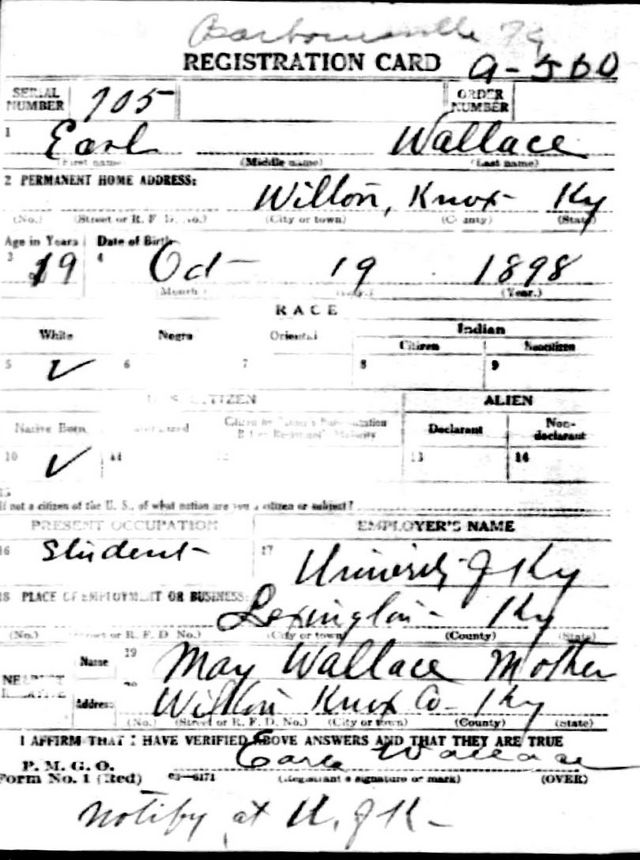 Barbourville Ky
REGISTRATION CARD 9-560
SERIAL NUMBER 705 ORDER NUMBER
1 Earl Wallace
(First name) (Middle name) (Last name)
2 PERMANENT HOME ADDRESS:
Wilton, Knox Ky
(No.) (Street or R. F. D. No.) (City or town) (County) (State)
Age in Years Date of Birth
3 19 4 Oct - 19 1898
(Month.) (Day.) (Year.)
RACE
White Negro Oriental Indian
Citizen Noncitizen
5 ✓ 6 7 8 9
U. S. CITIZEN ALIEN
Native Born Naturalized Citizen by Father's Naturalization Before Registrant's Majority Declarant Non-declarant
10 ✓ 11 12 13 14
15
If not a citizen of the U. S., of what nation are you a citizen or subject?
PRESENT OCCUPATION EMPLOYER'S NAME
16 Student 17 University of Ky
18 PLACE OF EMPLOYMENT OR BUSINESS:
Lexington - Ky
(No.) (Street or R. F. D. No.) (City or town) (County) (State)
NEAREST RELATIVE Name 19 May Wallace Mother
Address 20 Wilton Knox Co - Ky
(No.) (Street or R. F. D. No.) (City or town) (County) (State)
I AFFIRM THAT I HAVE VERIFIED ABOVE ANSWERS AND THAT THEY ARE TRUE
P. M. G. O.
Form No. 1 (Red) 03-6171 Earl Wallace
(Registrant's signature or mark) (OVER)
Notify at U. of K -